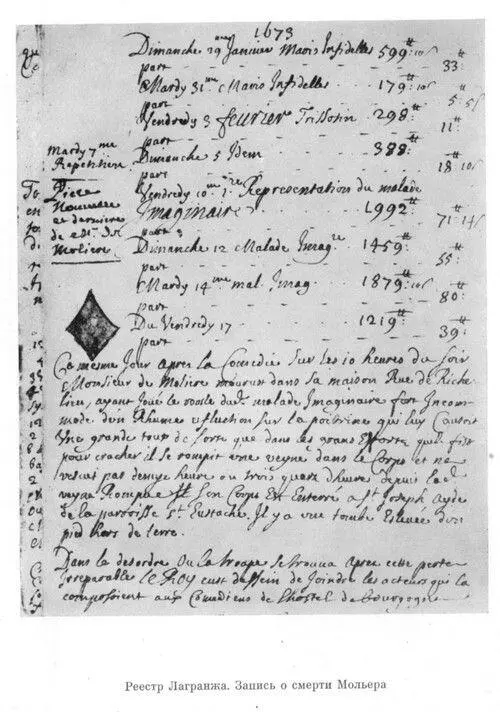 1673
Dimanche 29 me Janvier Maris Infidelles 599 lt 10 s
part 33 lt
Mardy 31 me Maris Infidelles 179 lt 10 s
part 5 lt 5 s
Vendredy 3 feurier Trissotin 298 lt
part 11 lt
Mardy 7 me
Repetition
Dimanche 5 Idem 388 lt
part 18 10 s
Piece
Nouuelle
et derniere
de Mr. de
Moliere
Vendredy 10 me Representation du malade
Imaginaire 1992 lt
part 71 lt
Dimanche 12 Malade Imag re 1459 lt
part 55
Mardy 14 me mal. Imag. 1879 lt 10 s
part 80
Du Vendredy 17 1219 lt
part 39
Ce mesme Jour apres la Comedie Sur les 10 heures du soir
Monsieur de Moliere mourust dans sa maison Rue de Riche
lieu, ayant Joué le roole dud. malade Imaginaire fort Incom
modé d'un Rhume et fluction Sur la poitrine qui luy Causoit
Vne grande toux de Sorte que dans les grans Efforts qu'il fist
pour cracher il se rompit vne veyne dans le Corps et ne
vescut pas demye heure ou trois quarts d'heure depuis lad.
veyne Rompue Son Corps Est Enterré a St. Joseph Ayde
de la parroisse St. Eustache. Il y a vne tombe Esleuée d'vn
pied hors de terre.
Dans le desordre Ou la troupe Se trouua Apres cette perte
Irreparable le ROY eust dessein de Joindre les acteurs qui la
composoient aux Comediens de l'hostel de bourgogne
Реестр Лагранжа. Запись о смерти Мольера